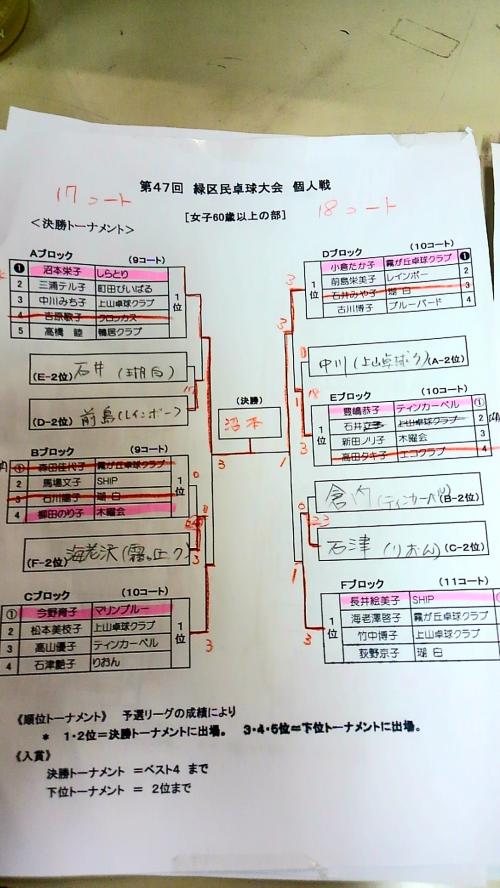 第47回 緑区民卓球大会 個人戦
17コート
[女子60歳以上の部]
18コート
＜決勝トーナメント＞
Aブロック (9コート)
❶ 沼本栄子 しらとり
2 三浦テル子 町田びいぱる
3 中川みち子 上山卓球クラブ
4 吉原敏子 クロッカス
5 高橋 睦 鴨居クラブ
1位
(E-2位) 石井(瑚白)
(D-2位) 前島(レインボー)
Bブロック (9コート)
① 森田佳代子 霧が丘卓球クラブ
2 馬場文子 SHIP
3 石川陽子 瑚白
4 柳田のり子 木曜会
1位
(F-2位) 海老沢(霧ヶ丘ク)
Cブロック (10コート)
① 今野育子 マリンブルー
2 松本美枝子 上山卓球クラブ
3 高山優子 ティンカーベル
4 石津艶子 りおん
1位
(決勝)
沼本
3 1
Dブロック (10コート)
小倉たか子 霧が丘卓球クラブ ❶
前島栄美子 レインボー 2
石井みや子 瑚白 3
古川博子 ブルーバード 4
1位
中川(上山卓球ク) (A-2位)
Eブロック (10コート)
豊嶋恭子 ティンカーベル ①
石井 上山卓球クラブ 2
新田ノリ子 木曜会 3
高田タキ子 エコクラブ 4
1位
倉内(ティンカーベル) (B-2位)
石津(りおん) (C-2位)
Fブロック (11コート)
長井絵美子 SHIP
海老澤啓子 霧が丘卓球クラブ
竹中博子 上山卓球クラブ
荻野京子 瑚白
1位
《順位トーナメント》 予選リーグの成績により
* 1・2位＝決勝トーナメントに出場。 3・4・5位＝下位トーナメントに出場。
《入賞》
決勝トーナメント ＝ベスト4 まで
下位トーナメント ＝ 2位まで